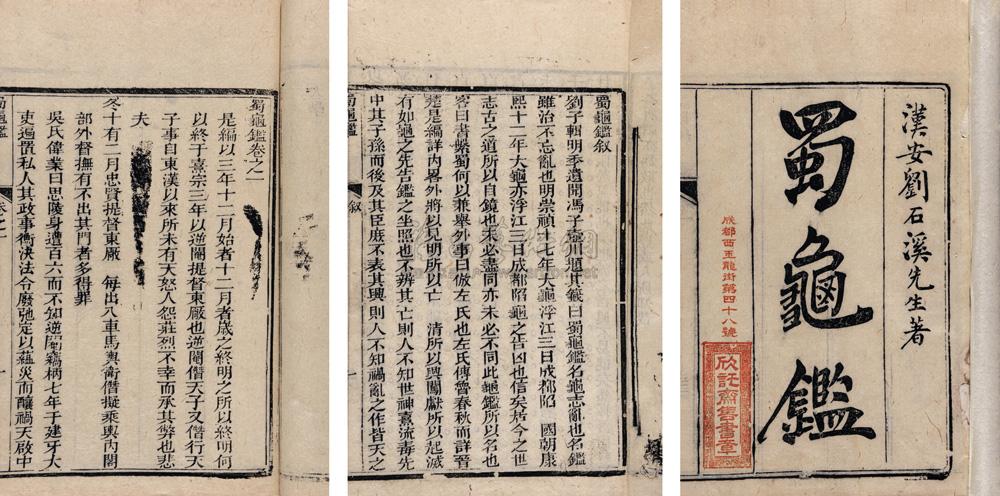 漢安劉石溪先生著
蜀龜鑑
成都西玉龍街第四十八號
欣託齋售書章
蜀龜鑑叙
劉子輯明季遺聞馮子壺川題其籤曰蜀龜鑑名龜志亂也名鑑
雖治不忘亂也明崇禎十七年大龜浮江三日成都陷 國朝康
熙十二年大龜亦浮江三日成都陷龜之告凶也信矣居今之世
志古之道所以自鏡也未必盡同亦未必不同此龜鑑所以名也
客曰書繫蜀何以兼舉外事曰倣左氏也左氏傳魯春秋而詳晉
楚是編詳內畧外將以見明所以亡 清所以興闖獻所以起滅
有如龜之先告鑑之坐照也不辨其亡則人不知世神熹流毒先
中其子孫而後及其臣庶不表其興則人不知禍亂之作皆天之
蜀龜鑑 叙 一
蜀龜鑑卷之一
是編以三年十二月始者十二月者歲之終明之所以終明何
以終于熹宗三年以逆閹提督東廠也逆閹僭天子又僭行天
子事自東漢以來所未有天怒人怨莊烈不幸而承其弊也悲
夫
冬十有二月忠賢提督東廠 每出入車馬輿衛僭擬乘輿內閣
部外督撫有不出其門者多得罪
吳氏偉業曰思陵身遭百六而不知逆閹竊柄七年于建牙大
吏遍置私人其政事衡決法令廢弛定以蘊災而釀禍天啟中
蜀龜鑑 卷之一 一